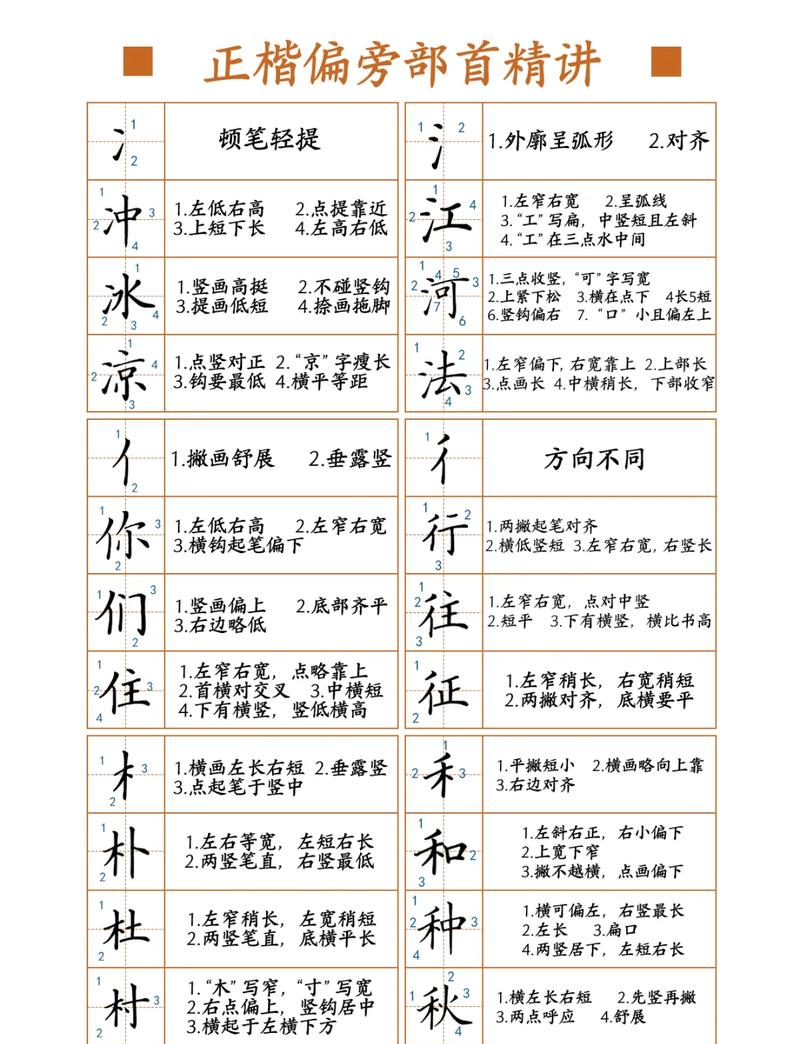 正楷偏旁部首精讲
冫 1 2 顿笔轻提
冲 1 2 3 4
1.左低右高 2.点提靠近
3.上短下长 4.左高右低
冰 1 2 3 4
1.竖画高挺 2.不碰竖钩
3.提画低短 4.捺画拖脚
凉 1 2 3 4
1.点竖对正 2.“京”字瘦长
3.钩要最低 4.横平等距
氵 1 2 1.外廓呈弧形 2.对齐
江 1 2 3 4
1.左窄右宽 2.呈弧线
3.“工”写扁，中竖短且左斜
4.“工”在三点水中间
河 1 2 3 4 5 6 7
1.三点收竖，“可”字写宽
2.上紧下松 3.横在点下 4长5短
6.竖钩偏右 7.“口”小且偏左上
法 1 2 3 4
1.左窄偏下，右宽靠上 2.上部长
3.点画长 4.中横稍长，下部收窄
亻 1 2 1.撇画舒展 2.垂露竖
你 1 2 3
1.左低右高 2.左窄右宽
3.横钩起笔偏下
们 1 2 3
1.竖画偏上 2.底部齐平
3.右边略低
住 1 2 3 4
1.左窄右宽，点略靠上
2.首横对交叉 3.中横短
4.下有横竖，竖低横高
彳 1 方向不同
行 1 2 3
1.两撇起笔对齐
2.横低竖短 3.左窄右宽，右竖长
往 1 2 3
1.左窄右宽，点对中竖
2.短平 3.下有横竖，横比书高
征 1 2
1.左窄稍长，右宽稍短
2.两撇对齐，底横要平
木 1 2 3
1.横画左长右短 2.垂露竖
3.点起笔于竖中
朴 1 2
1.左右等宽，左短右长
2.两竖笔直，右竖最低
杜 1 2
1.左窄稍长，左宽稍短
2.两竖笔直，底横平长
村 1 2 3
1.“木”写窄，“寸”写宽
2.右点偏上，竖钩居中
3.横起于左横下方
禾 1 2 3
1.平撇短小 2.横画略向上靠
3.右边对齐
和 1 2 3
1.左斜右正，右小偏下
2.上宽下窄
3.撇不越横，点画偏下
种 1 2 3 4
1.横可偏左，右竖最长
2.左长 3.扁口
4.两竖居下，左短右长
秋 1 2 3 4
1.横左长右短 2.先竖再撇
3.两点呼应 4.舒展